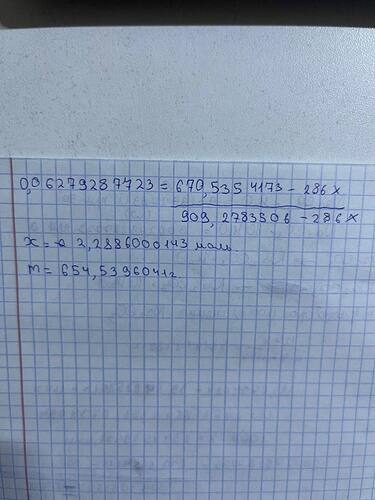 0,06279287723 = 670,5354173 - 286x
909,2783506 - 286x
x = 2,2886000143 моль.
m = 654,5396041 г.